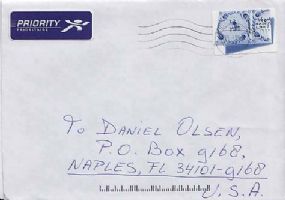 PRIORITY
PRIORITAIRE
To DANIEL OLSEN,
P.O. Box 9168,
NAPLES, FL 34101-9168
U.S.A.